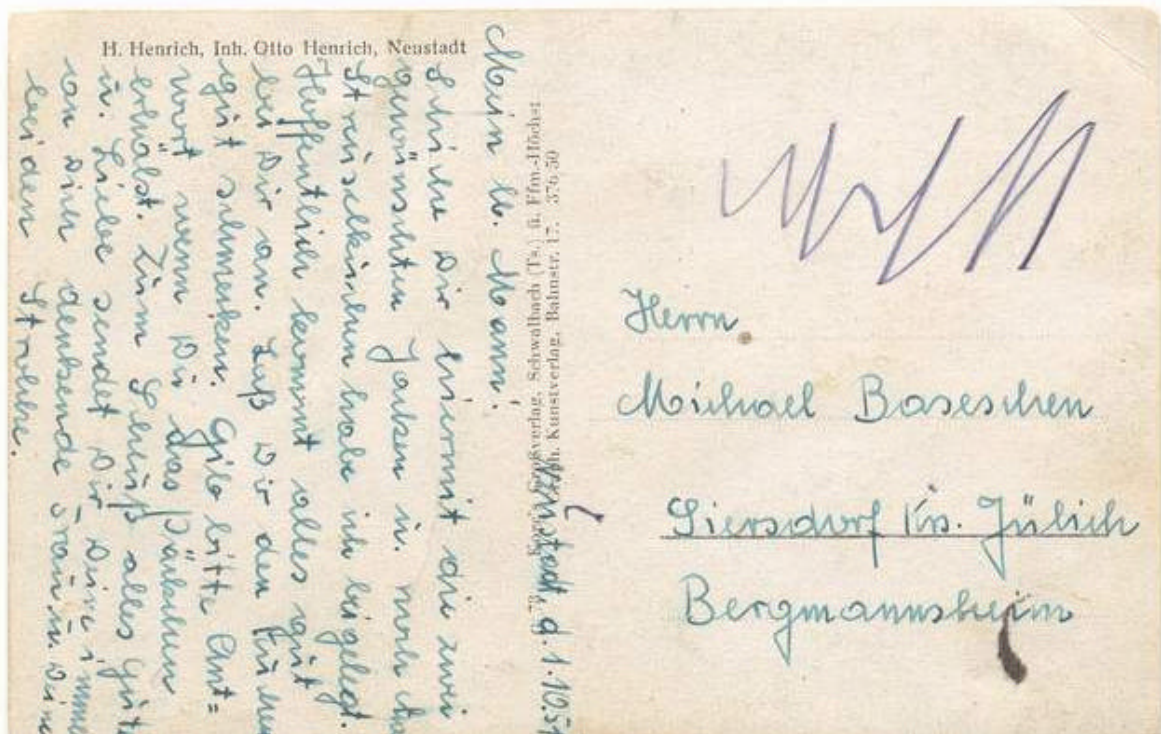 H. Henrich, Inh. Otto Henrich, Neustadt
Neustadt, d. 1.10.51
Mein lb. Mann!
Schicke Dir hiermit die zwei
gewünschten Jacken u. noch
Streuselkuchen habe ich beigelegt.
Hoffentlich kommt alles gut
bei Dir an. Laß Dir den Kuchen
gut schmecken. Gib bitte Ant=
wort wenn Du das Päckchen
erhälst. Zum Schluß alles Gute
u. Liebe sendet Dir Deine immer
an Dich denkende Frau u. Deine
beiden
Verlag, Schwalbach (Ts.) ü. Ffm.-Höchst
Kunstverlag, Bahnstr. 17. 376 50
Herrn
Michael Baseschen
Siersdorf Krs. Jülich
Bergmannsheim